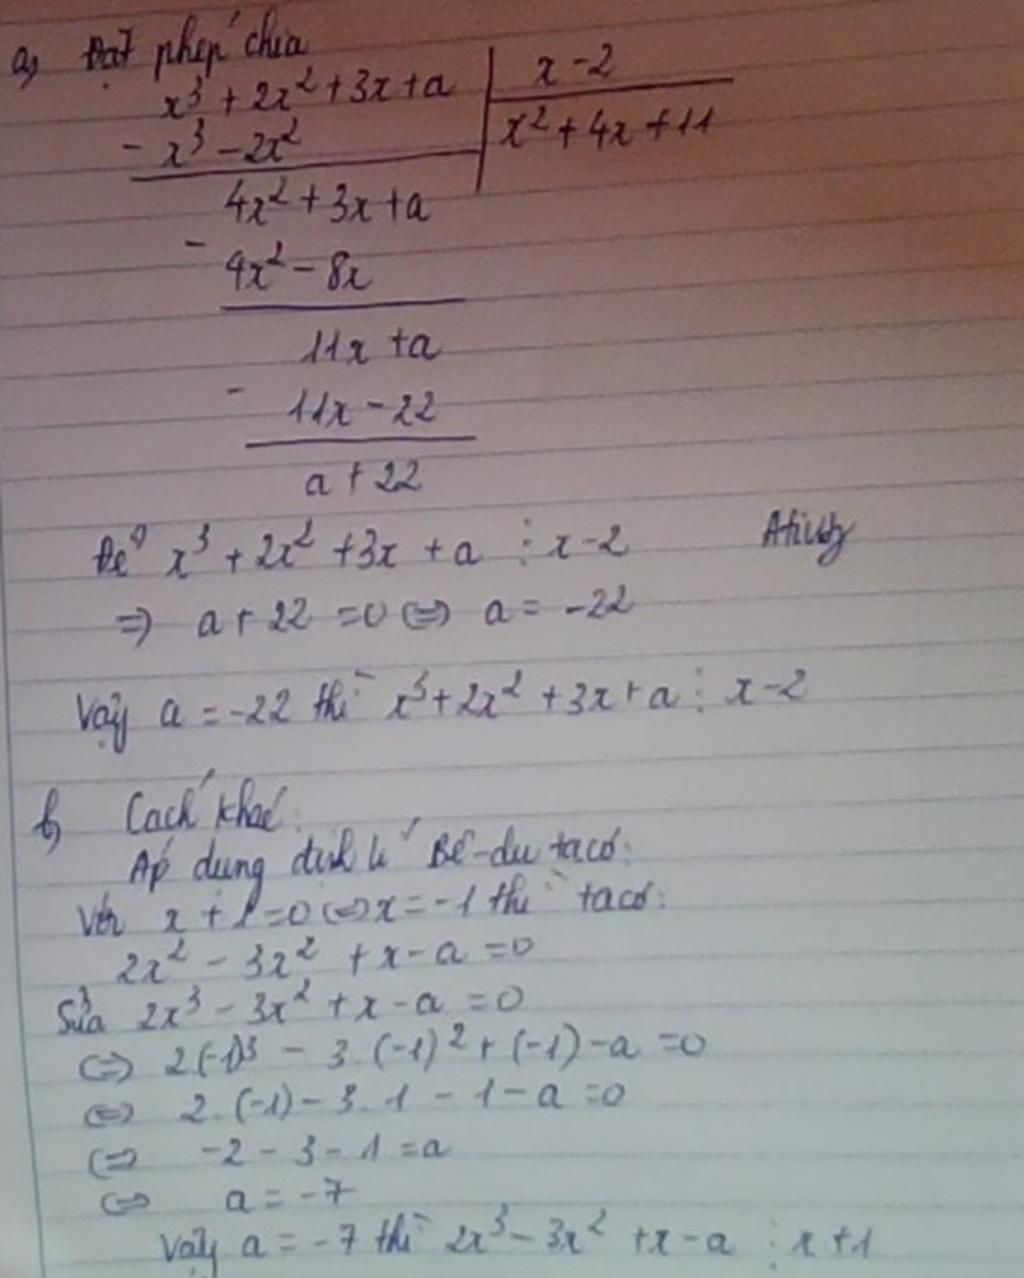 a) Đặt phép chia
x³ + 2x² + 3x + a | x - 2
- x³ - 2x² | x² + 4x + 11
4x² + 3x + a
- 4x² - 8x
11x + a
- 11x - 22
a + 22
Để x³ + 2x² + 3x + a ⋮ x - 2
⇒ a + 22 = 0 ⇔ a = -22
Vậy a = -22 thì x³ + 2x² + 3x + a ⋮ x - 2
b) Cách khác:
Áp dụng định lí Bê-du ta có:
Với x + 1 = 0 ⇔ x = -1 thì ta có:
2x² - 3x² + x - a = 0
Sửa 2x³ - 3x² + x - a = 0
⇔ 2(-1)³ - 3.(-1)² + (-1) - a = 0
⇔ 2.(-1) - 3.1 - 1 - a = 0
⇔ -2 - 3 - 1 = a
⇔ a = -7
Vậy a = -7 thì 2x³ - 3x² + x - a ⋮ x + 1